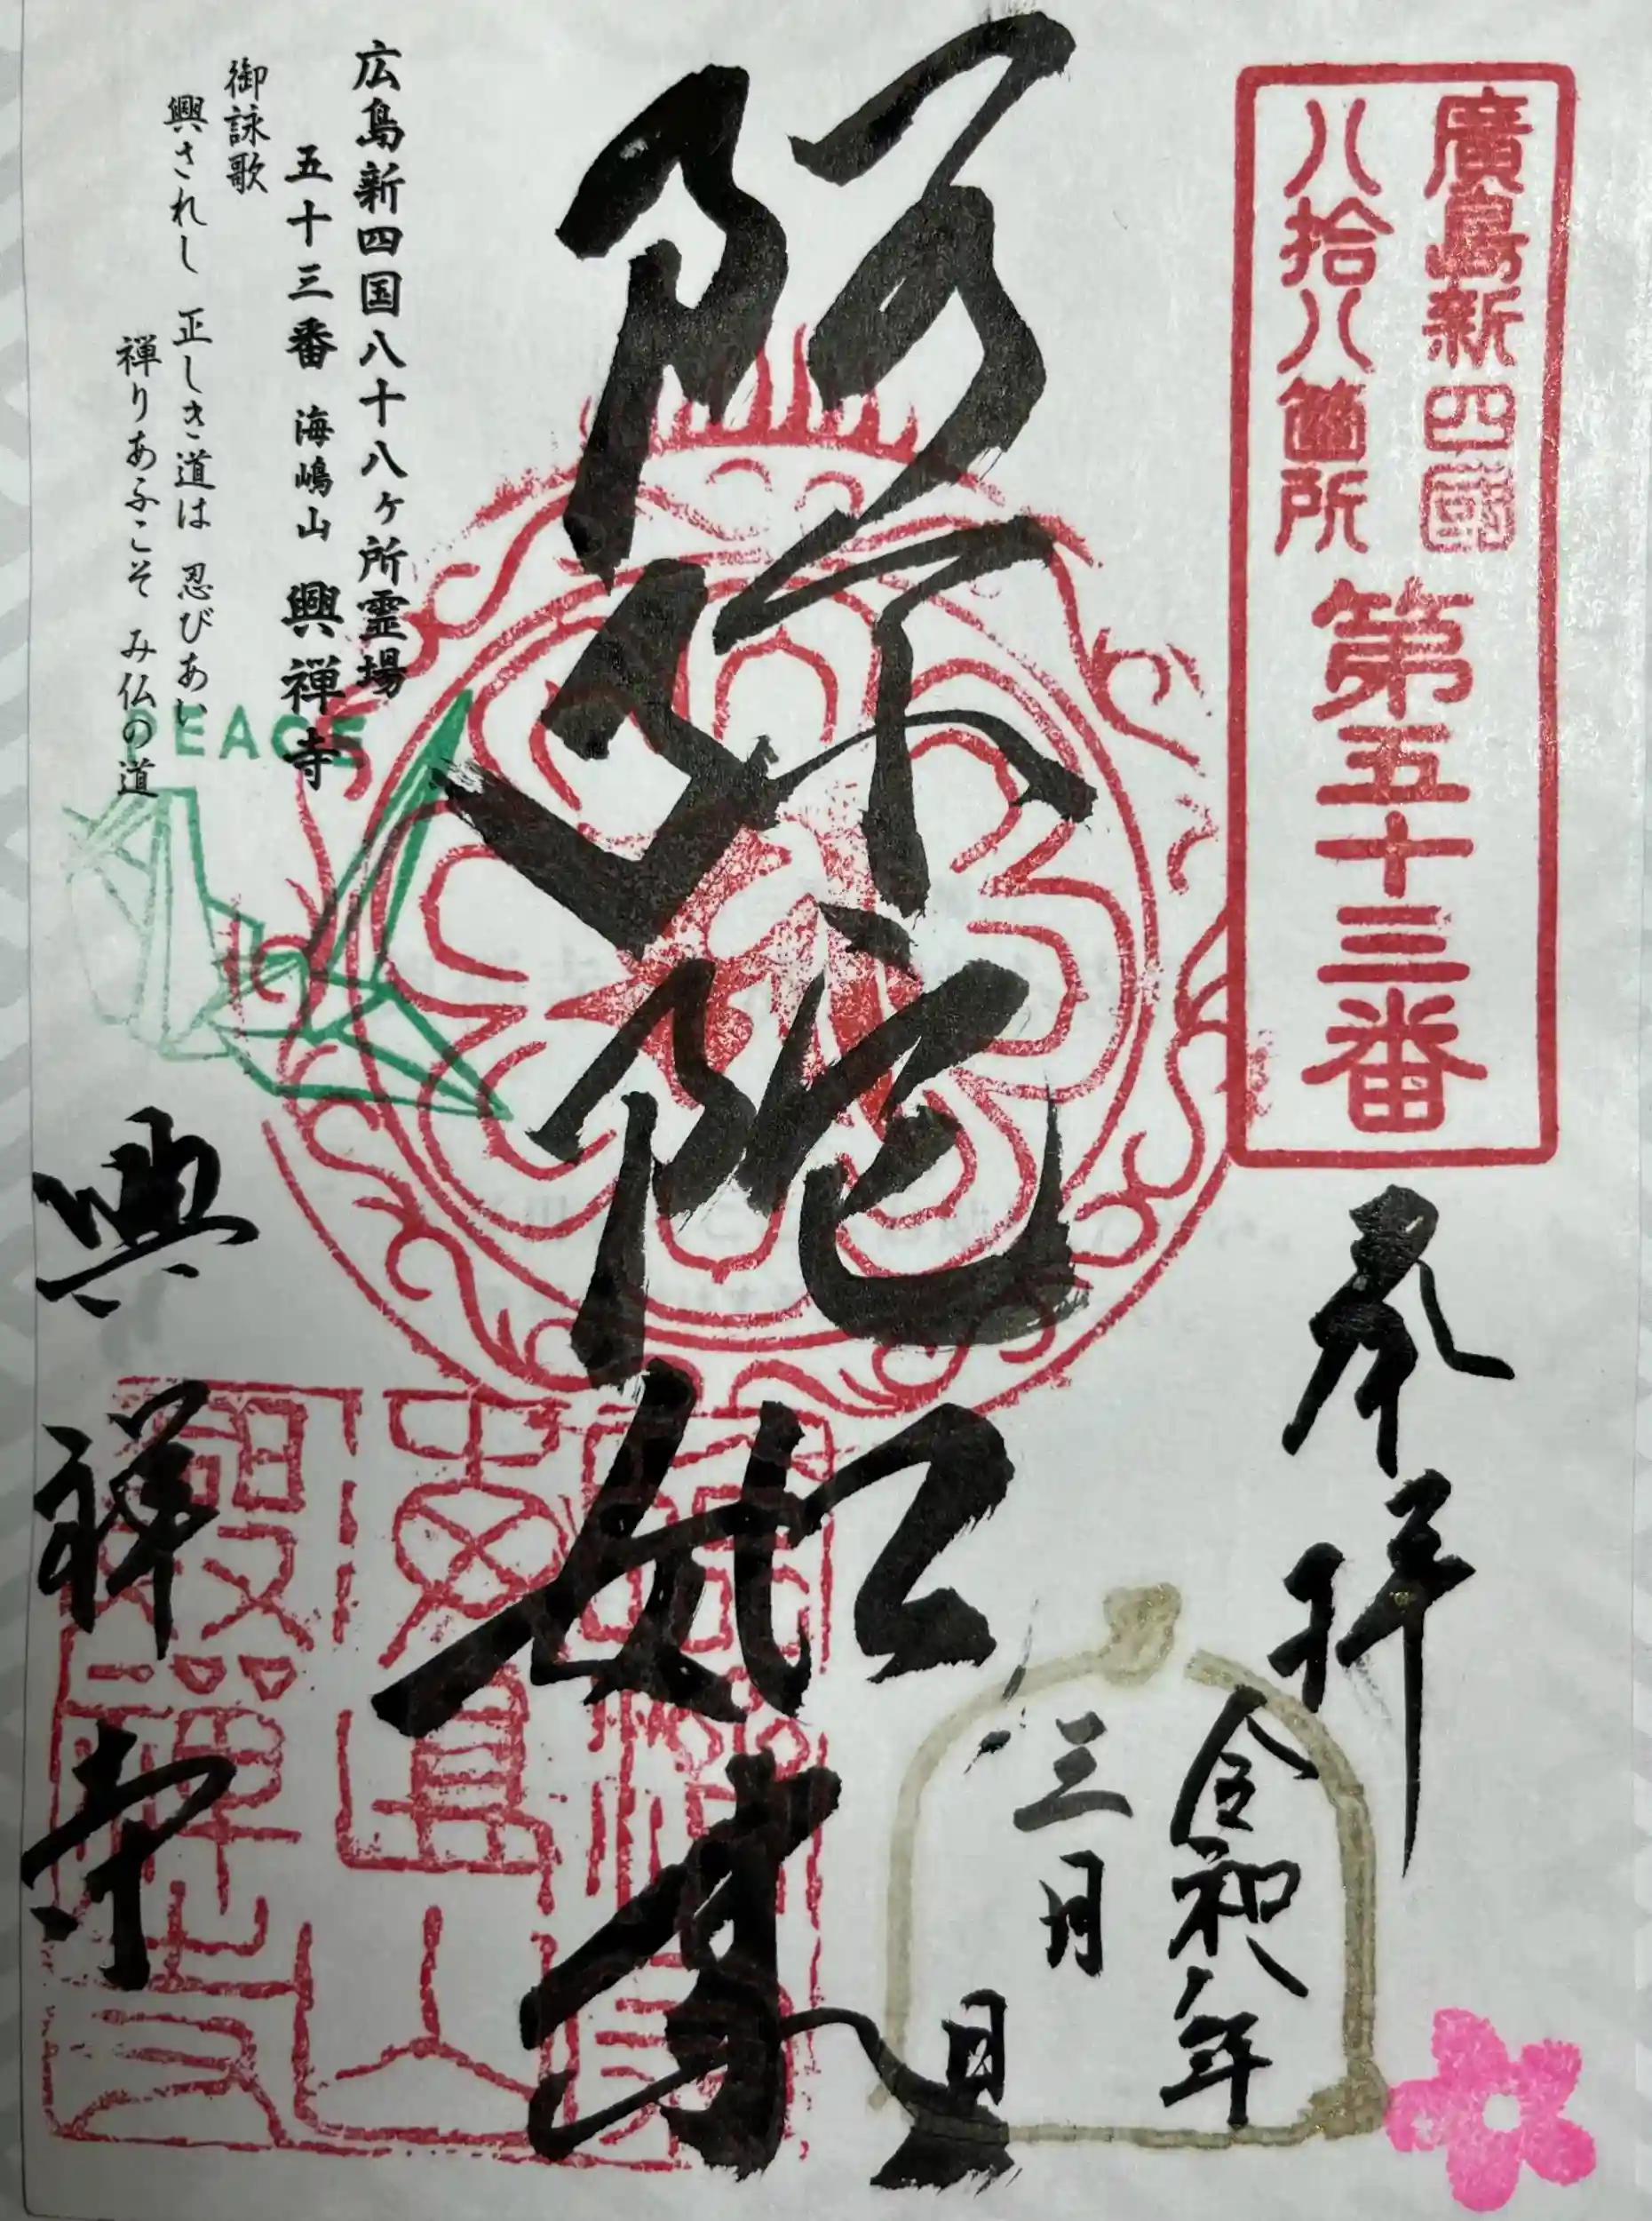 廣島新四國
八拾八箇所
第五十三番
奉拝
令和 年
三月 日
阿弥陀如来
広島新四国八十八ヶ所霊場
五十三番 海嶋山 興禅寺
御詠歌
興されし 正しき道は 忍びあい
禅りあふこそ み仏の道
PEACE
興禅寺